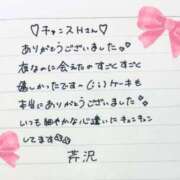 ♡チャンスHさん♡
ありがとうございました
夜なのに会えたのすごくすごく
嬉しかったです〜(;;)ケーキも
本当にありがとうございます
いつも細やかな心遣いにキュンキュン
してます
芹沢